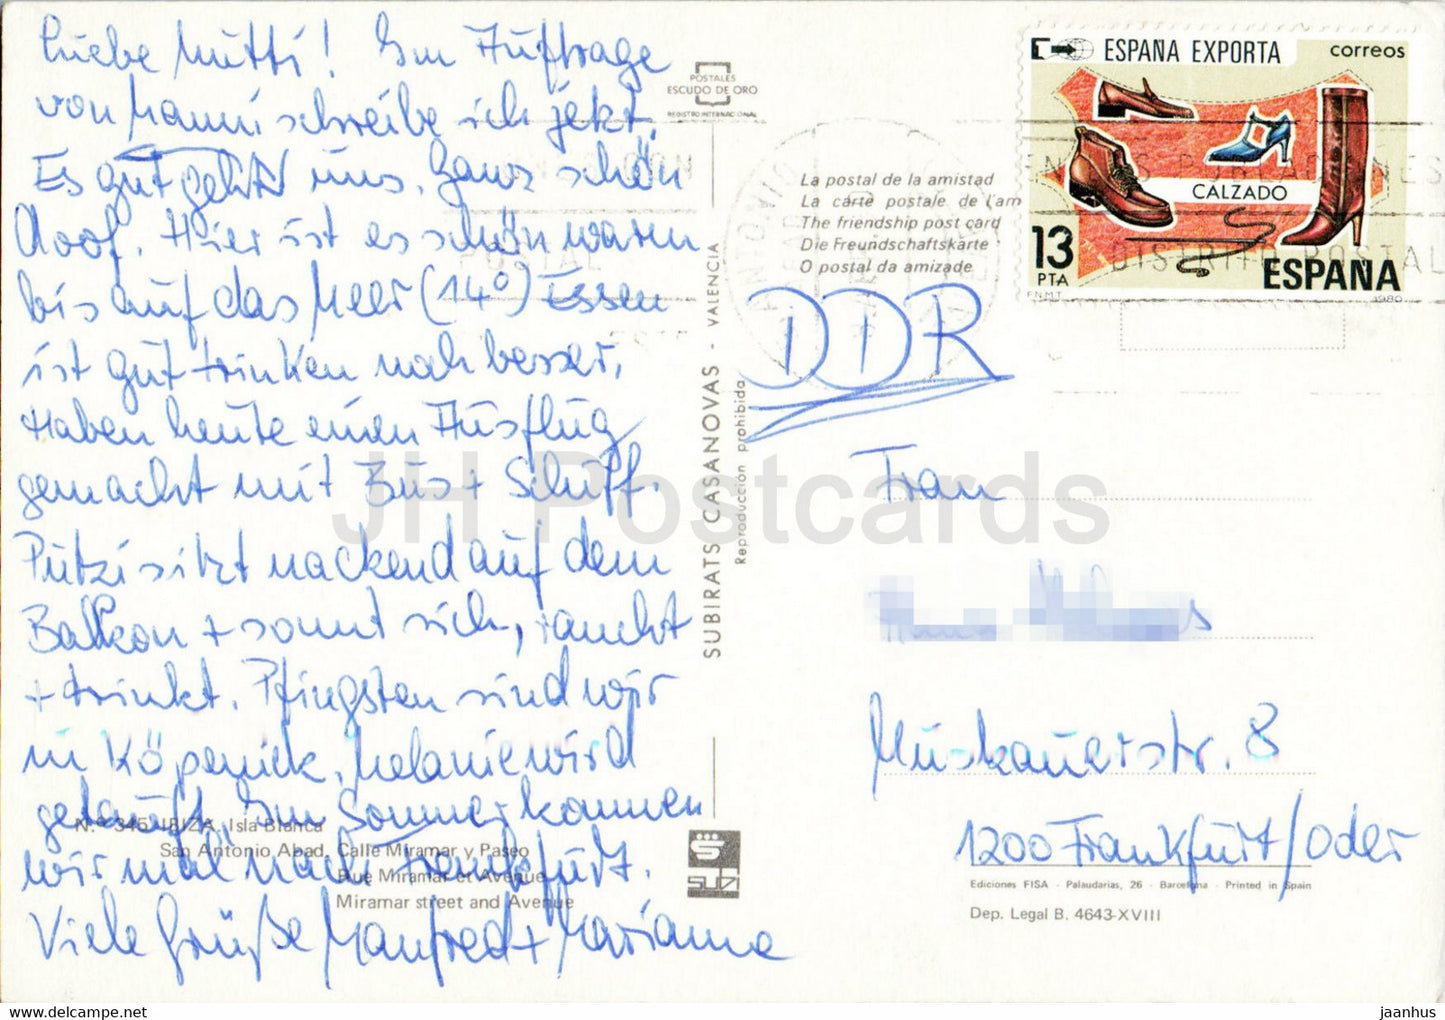 Liebe Mutti! Im Auftrage
von Manni schreibe ich jetzt.
Es geht uns gut. Ganz schön
doof. Hier ist es schön warm
bis auf das Meer (14°) Essen
ist gut trinken noch besser.
Haben heute einen Ausflug
gemacht mit Bus + Schiff.
Putzi sitzt nackend auf dem
Balkon + sonnt sich, raucht
+ trinkt. Pfingsten sind wir
in Köpenick, Melanie wird
getauft. Im Sommer kommen
wir mal nach Frankfurt.
Viele Grüße Manfred + Marianne
N.º 345 IBIZA. Isla Blanca
San Antonio Abad. Calle Miramar y Paseo
Rue Miramar et Avenue
Miramar street and Avenue
POSTALES
ESCUDO DE ORO
REGISTRO INTERNACIONAL
SUBIRATS CASANOVAS - VALENCIA
Reproducción prohibida
SUBI
La postal de la amistad
La carte postale de l'am
The friendship post card
Die Freundschaftskarte
O postal da amizade
ESPAÑA EXPORTA correos
CALZADO
13
PTA
ESPAÑA
F.N.M.T. 1980
DISTRITO POSTAL
DDR
Frau
Muskauerstr. 8
1200 Frankfurt/Oder
Ediciones FISA - Palaudarias, 26 - Barcelona - Printed in Spain
Dep. Legal B. 4643-XVIII
JH Postcards
https://jh-postcards.net
jaanhus